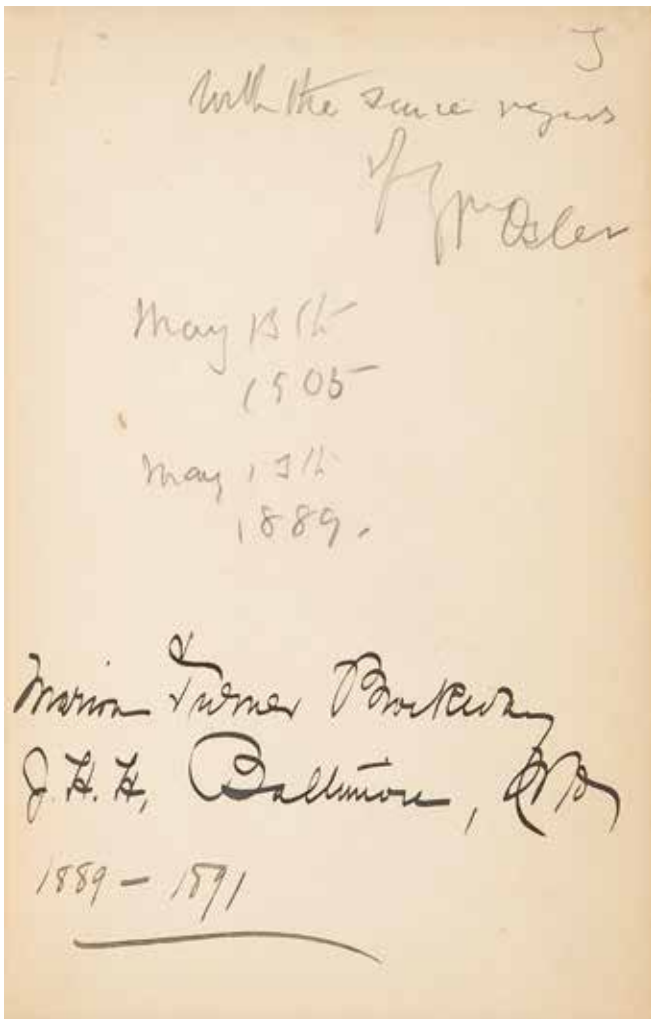 With the sincere regards
of Wm Osler
May 13th
1905
May 13th
1889.
Marion Turner Brockway
J. H. H, Baltimore, Md
1889 – 1891